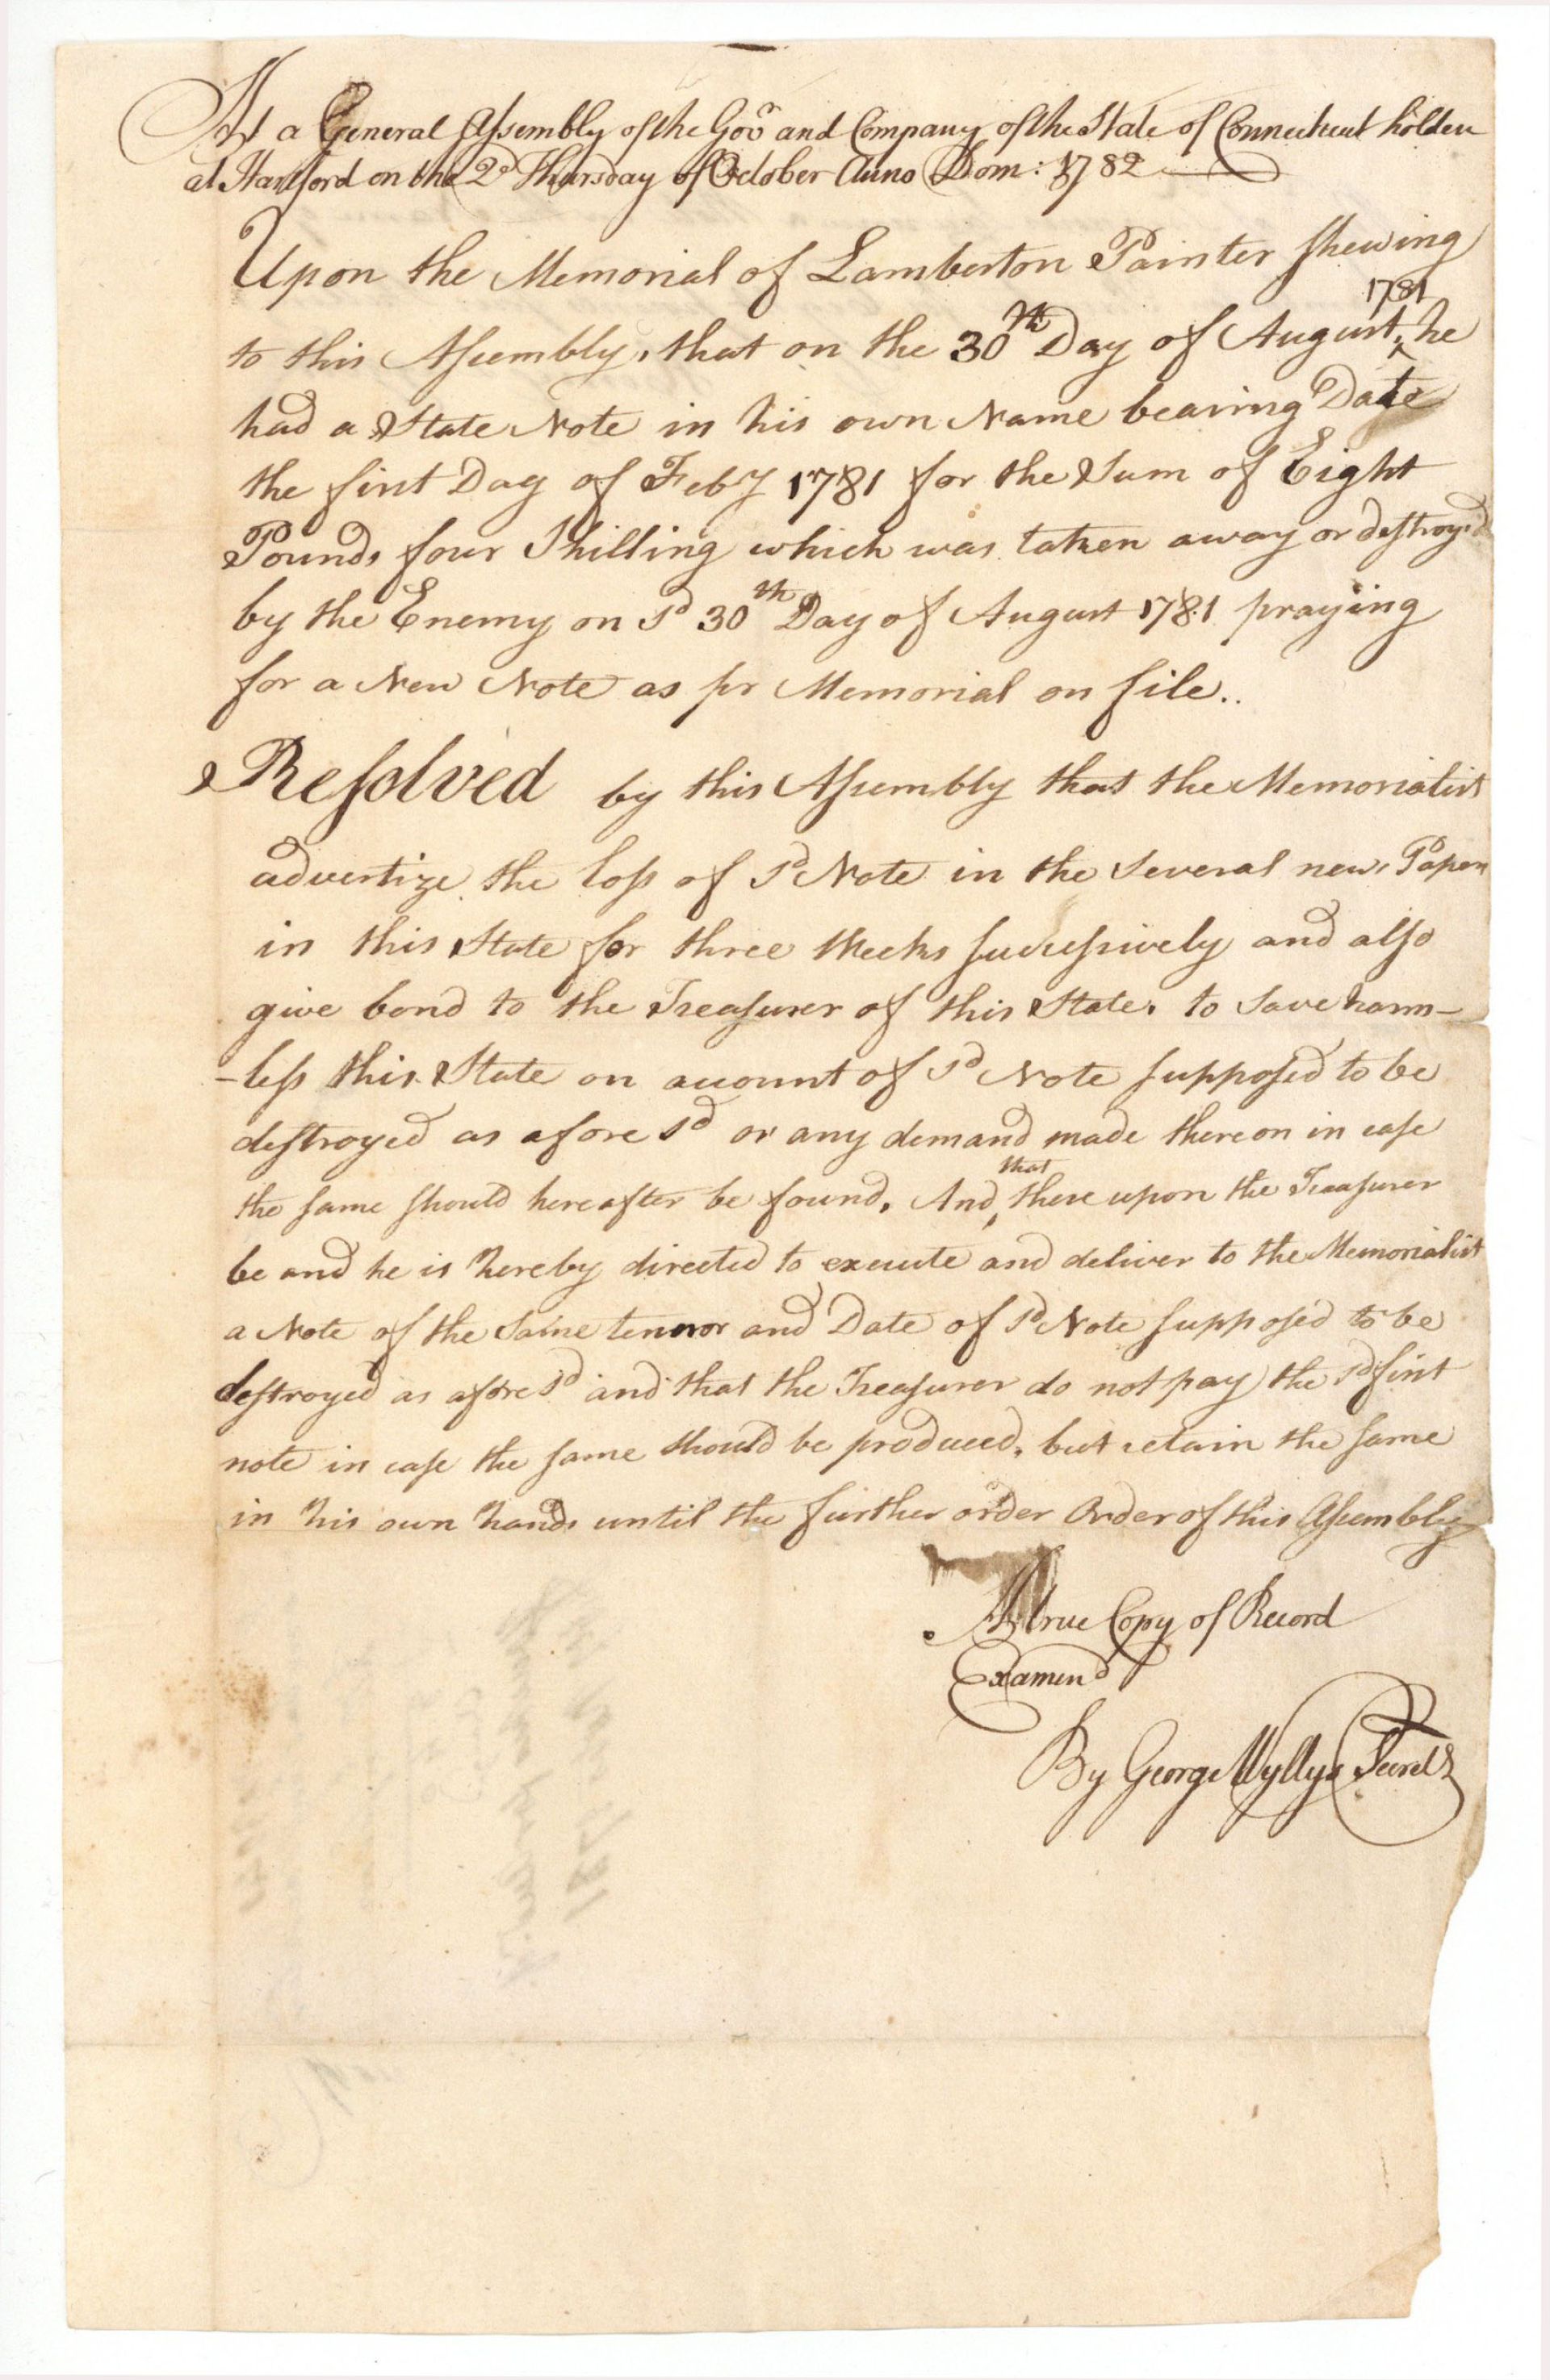 At a General Assembly of the Gov^r and Company of the State of Connecticut holden
at Hartford on the 2^d Thursday of October Anno Dom: 1782
Upon the Memorial of Lamberton Painter shewing
to this Assembly, that on the 30^th Day of August, ^1781 he
had a State Note in his own Name bearing Date
the first Day of Feb^y 1781 for the Sum of Eight
Pounds four Shilling which was taken away or destroy'd
by the Enemy on s^d 30^th Day of August 1781 praying
for a New Note as pr Memorial on file..
Resolved by this Assembly that the Memorialist
advertize the loss of s^d Note in the several news Papers
in this State for three Weeks successively and also
give bond to the Treasurer of this State, to save harm-
-less this State on account of s^d Note supposed to be
destroyed as afore s^d or any demand made thereon in case
the same should hereafter be found, And ^that there upon the Treasurer
be and he is hereby directed to execute and deliver to the Memorialist
a Note of the same tennor and Date of s^d Note supposed to be
destroyed as afore s^d and that the Treasurer do not pay the s^d first
note in case the same should be produced, but retain the same
in his own hands until the further order Order of this Assembly
A true Copy of Record
Examin^d
By George Wyllys Secret^y